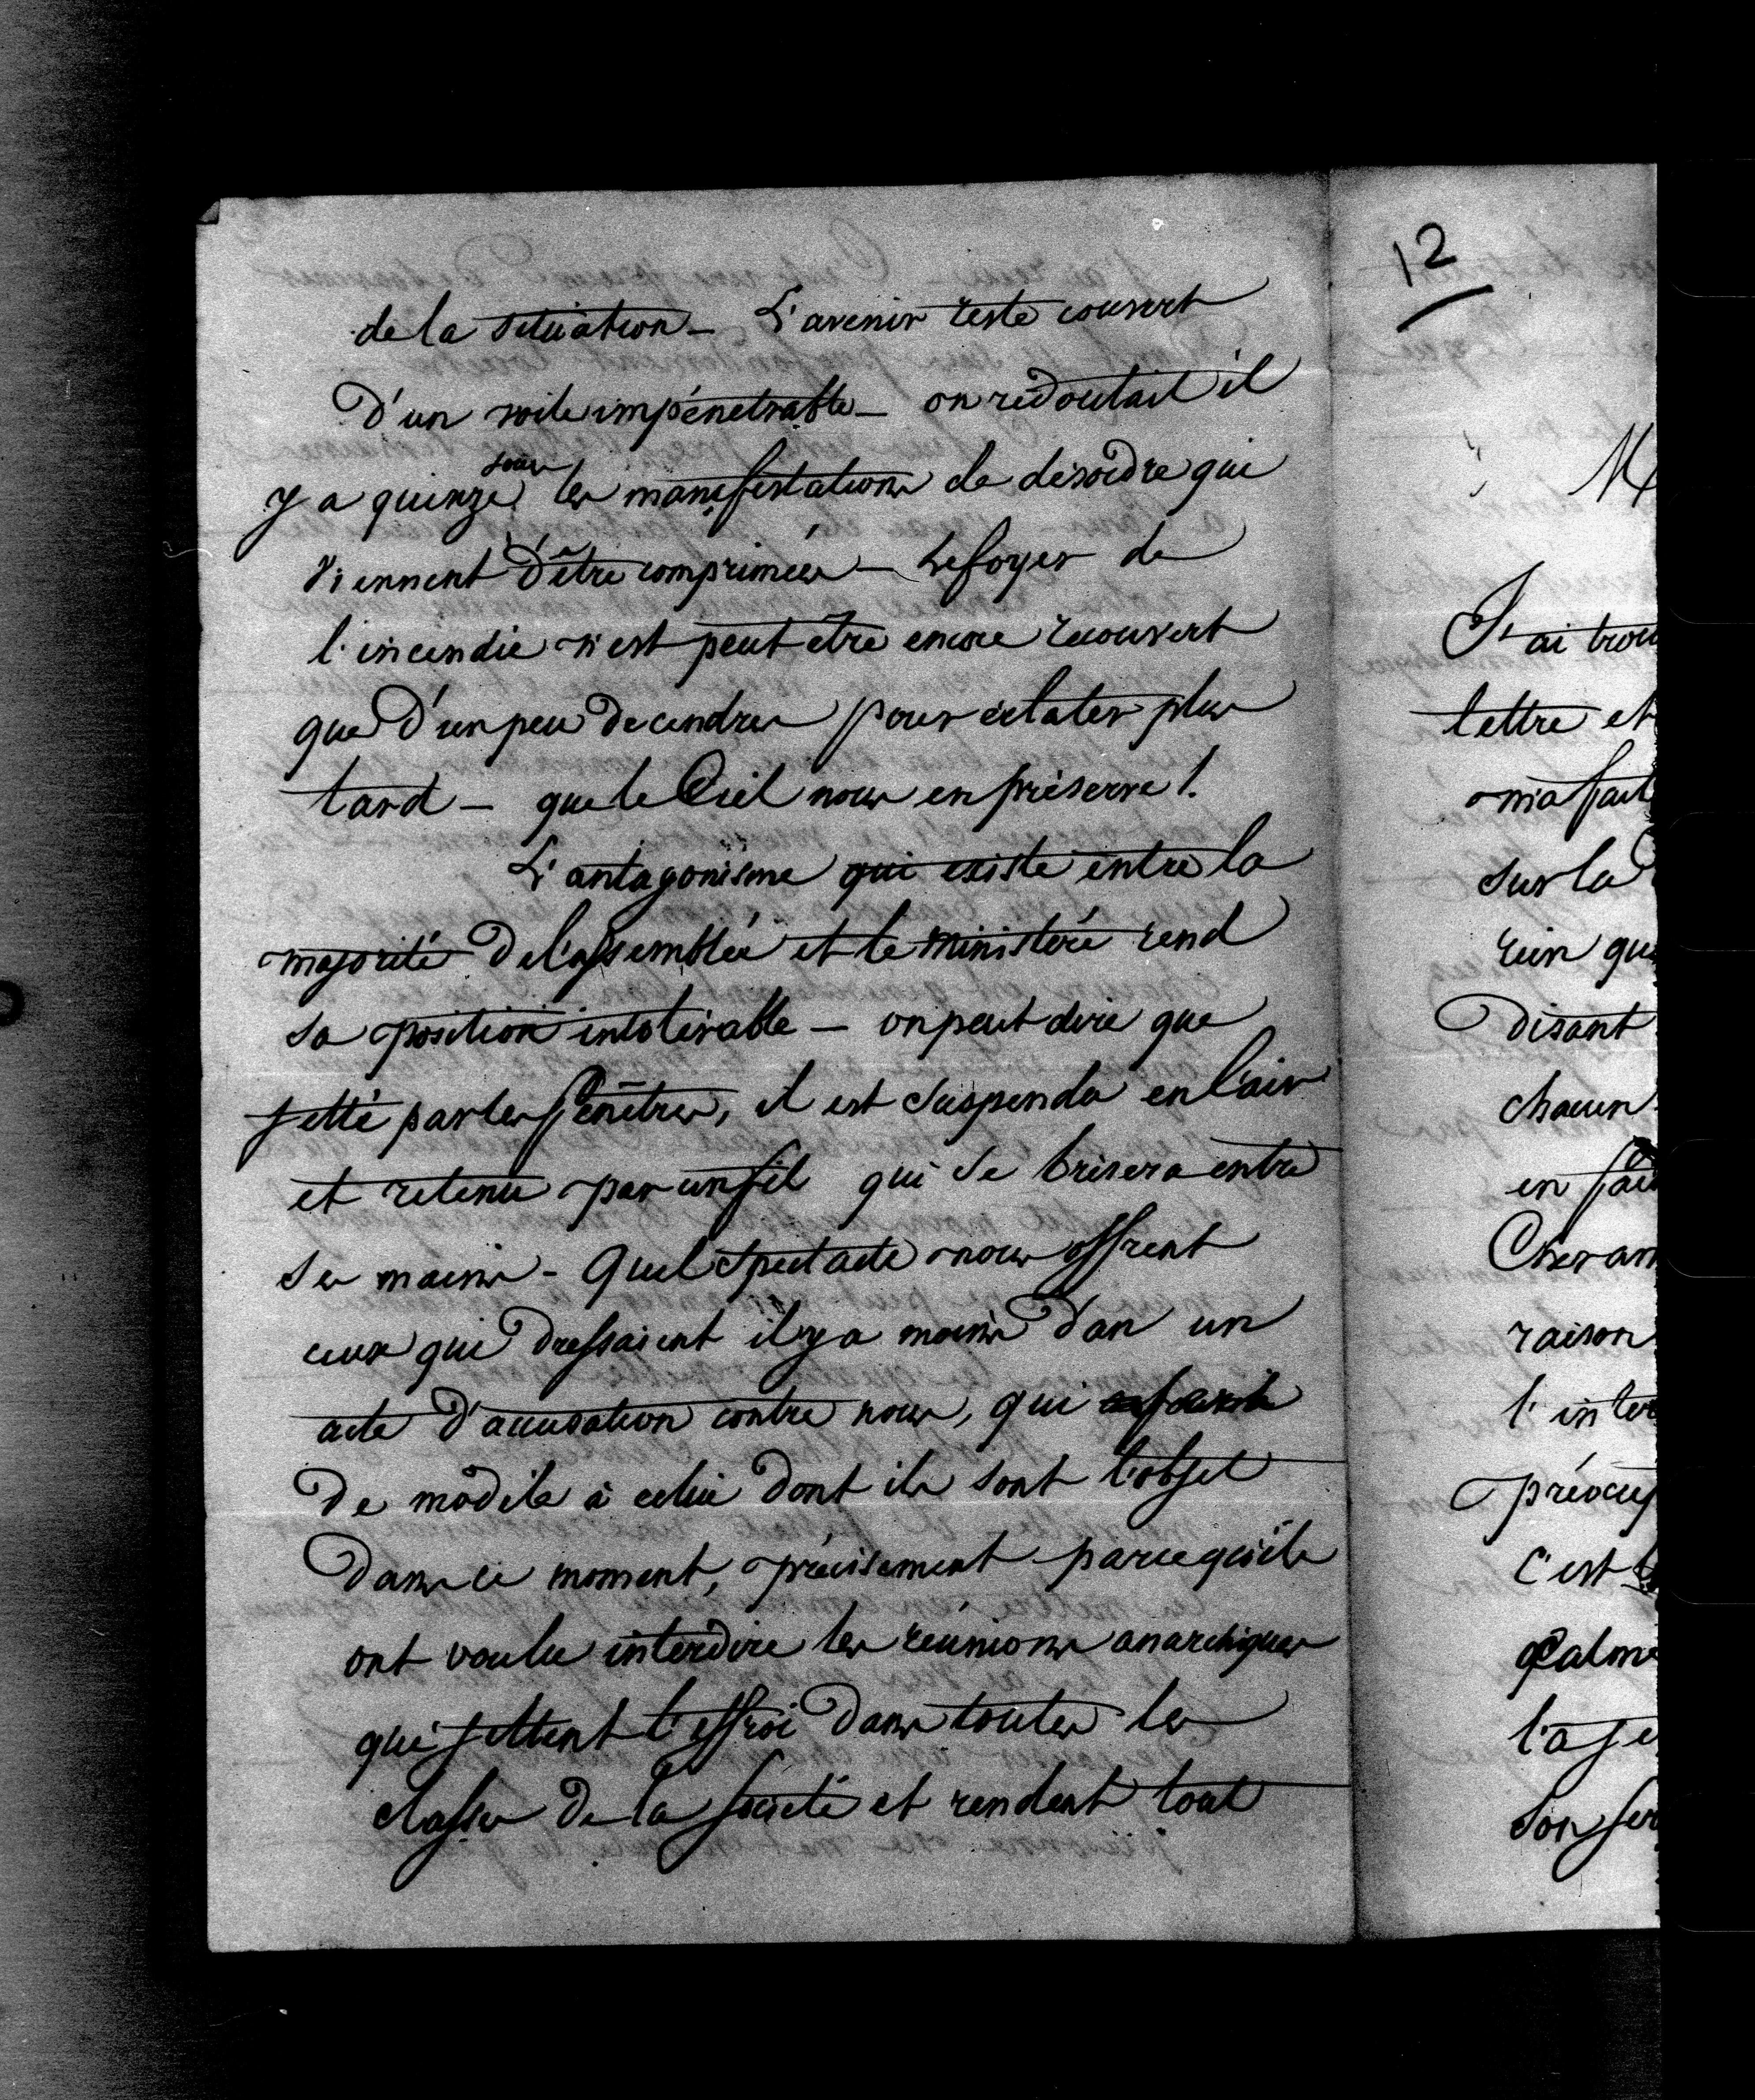 de la situation_ L'avenir reste couvert
D'un voile impénetrable_ on redoutait il
y a quinze jours les manifestations de désordre qui
viennent D'être comprimées_ le foyer de
l'incendie n'est peut être encore recouvert
que D'un peu De cendres pour éclater plus
tard_ que le Ciel nous en préserve !
L'antagonisme qui existe entre la
majorité De l'assemblée et le ministère rend
sa position intolérable_ on peut dire que
jetté par les fenêtres, il est suspendu en l'air
et retenu par un fil qui se brisera entre
ses mains_ Quel spectacle nous offrent
ceux qui Dressaient il y a moins D'an un
acte D'accusation contre nous, qui
De modèle à celui Dont ils sont l'objet
Dans ce moment, précisement parcequ'ils
ont voulu interdire les réunions anarchiques
qui jettent l'effroi Dans toutes les
classes De la société et rendent tout
12
M
J'ai trou
lettre et
m'a fait
sur la
rien qu
Disant
chacun
en fai
Cher am
raison
l'inter
préocup
C'est
calme
l'a je
son ser